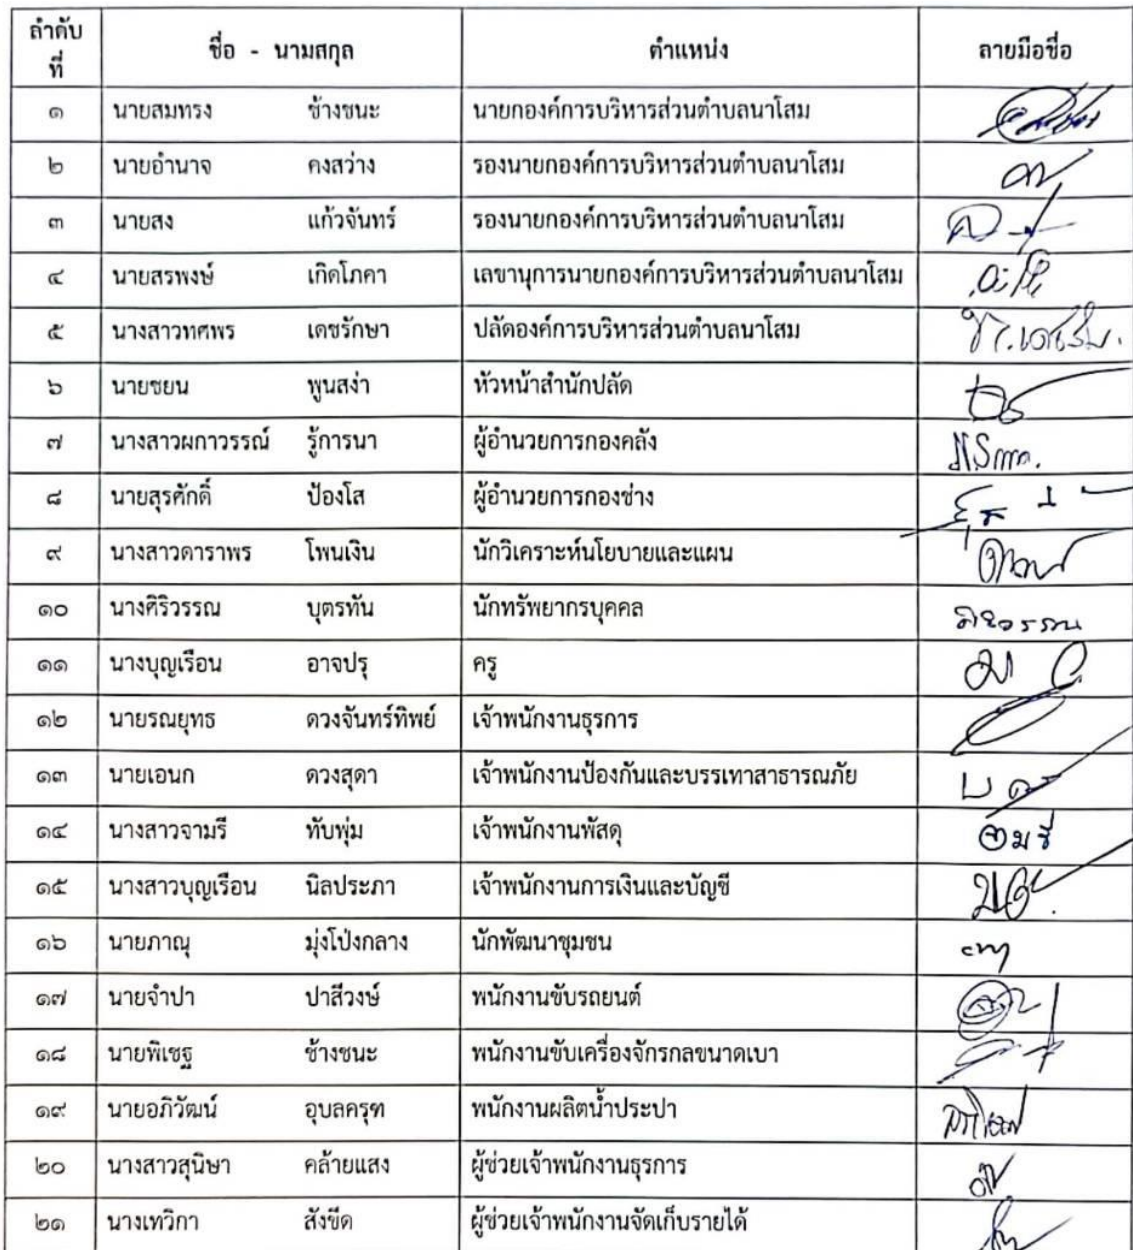 ลำดับ
ที่ ชื่อ - นามสกุล ตำแหน่ง ลายมือชื่อ
๑ นายสมทรง ช้างชนะ นายกองค์การบริหารส่วนตำบลนาโสม
๒ นายอำนาจ คงสว่าง รองนายกองค์การบริหารส่วนตำบลนาโสม
๓ นายสง แก้วจันทร์ รองนายกองค์การบริหารส่วนตำบลนาโสม
๔ นายสรพงษ์ เกิดโภคา เลขานุการนายกองค์การบริหารส่วนตำบลนาโสม
๕ นางสาวทศพร เดชรักษา ปลัดองค์การบริหารส่วนตำบลนาโสม
๖ นายชยน พูนสง่า หัวหน้าสำนักปลัด
๗ นางสาวผกาวรรณ์ รู้การนา ผู้อำนวยการกองคลัง
๘ นายสุรศักดิ์ ป้องโส ผู้อำนวยการกองช่าง
๙ นางสาวดาราพร โพนเงิน นักวิเคราะห์นโยบายและแผน
๑๐ นางศิริวรรณ บุตรทัน นักทรัพยากรบุคคล
๑๑ นางบุญเรือน อาจปรุ ครู
๑๒ นายรณยุทธ ดวงจันทร์ทิพย์ เจ้าพนักงานธุรการ
๑๓ นายเอนก ดวงสุดา เจ้าพนักงานป้องกันและบรรเทาสาธารณภัย
๑๔ นางสาวจามรี ทับพุ่ม เจ้าพนักงานพัสดุ
๑๕ นางสาวบุญเรือน นิลประภา เจ้าพนักงานการเงินและบัญชี
๑๖ นายภาณุ มุ่งโป่งกลาง นักพัฒนาชุมชน
๑๗ นายจำปา ปาสีวงษ์ พนักงานขับรถยนต์
๑๘ นายพิเชฐ ช้างชนะ พนักงานขับเครื่องจักรกลขนาดเบา
๑๙ นายอภิวัฒน์ อุบลครุฑ พนักงานผลิตน้ำประปา
๒๐ นางสาวสุนิษา คล้ายแสง ผู้ช่วยเจ้าพนักงานธุรการ
๒๑ นางเทวิกา สังขีด ผู้ช่วยเจ้าพนักงานจัดเก็บรายได้